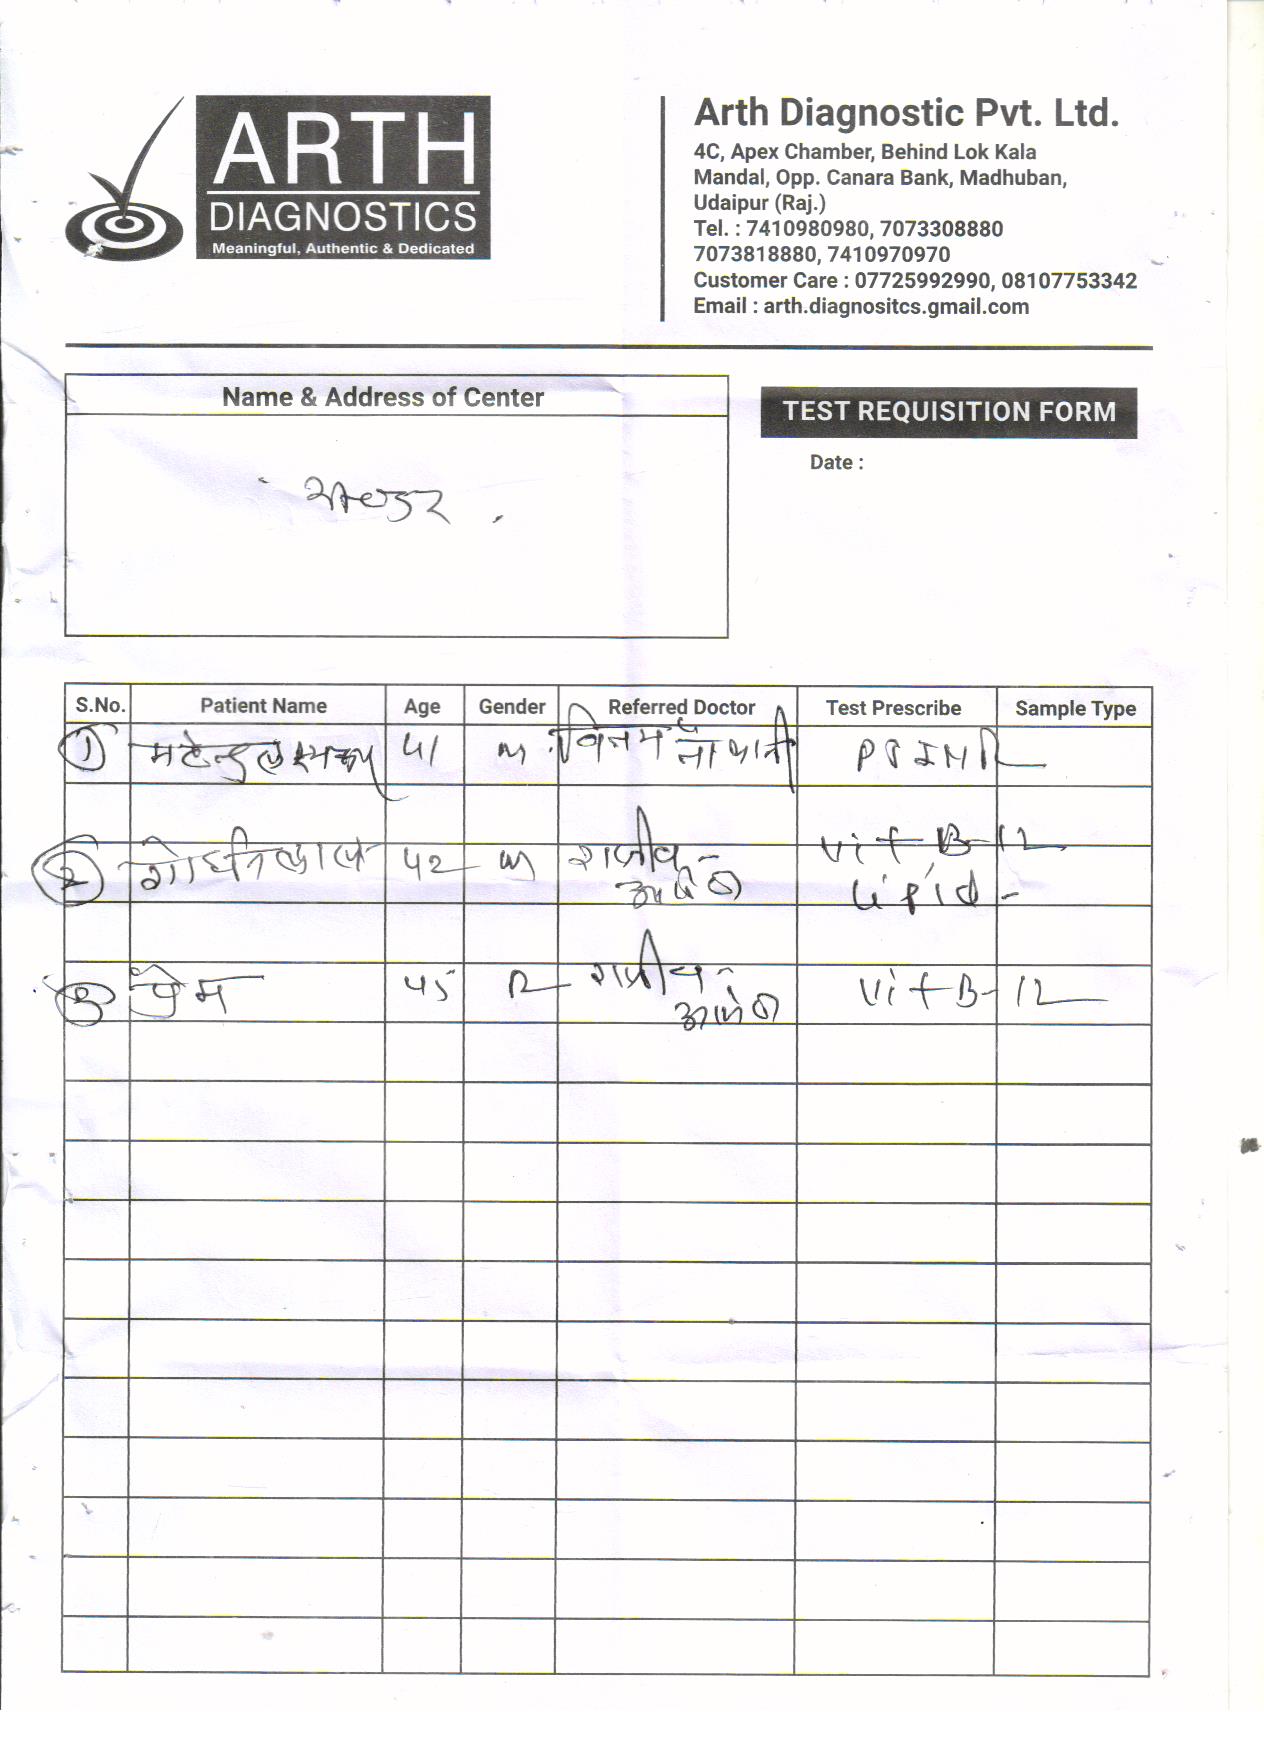 ARTH
DIAGNOSTICS
Meaningful, Authentic & Dedicated
Arth Diagnostic Pvt. Ltd.
4C, Apex Chamber, Behind Lok Kala
Mandal, Opp. Canara Bank, Madhuban,
Udaipur (Raj.)
Tel. : 7410980980, 7073308880
7073818880, 7410970970
Customer Care : 07725992990, 08107753342
Email : arth.diagnositcs.gmail.com
Name & Address of Center
TEST REQUISITION FORM
Date :
S.No. Patient Name Age Gender Referred Doctor Test Prescribe Sample Type
1 41 M विनय
2 42 M राजीव Vit B-12
Lipid
3 प्रेम 45 राजीव Vit B-12